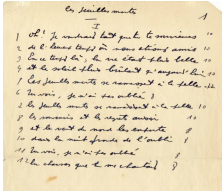 Les feuilles mortes 1
I
Oh! je voudrais tant que tu te souviennes 10
2 de l'heureux temps où nous étions amis 10
3 En ce temps là, la vie était plus belle 10
4 et le soleil plus brûlant qu'aujourd'hui 10
5 Les feuilles mortes se ramassent à la pelle
6 Tu vois, je n'ai pas oublié 8
7 Les feuilles mortes se ramassent à la pelle
8 les souvenirs et les regrets aussi 10
9 et le vent du nord les emporte 8
10 dans la nuit froide de l'oubli 8
11 Tu vois, je n'ai pas oublié 8
12 la chanson que tu me chantais 8